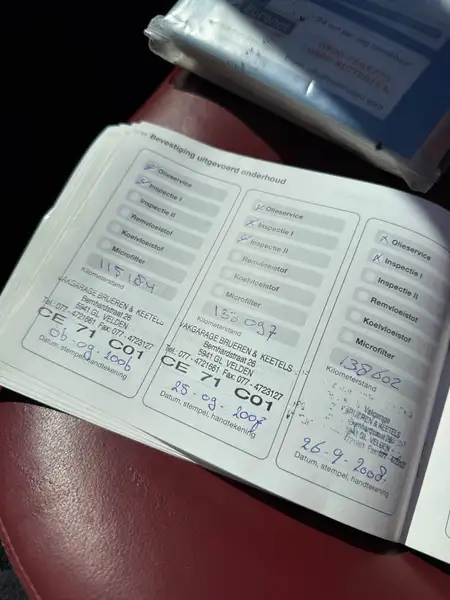 Bevestiging uitgevoerd onderhoud
Olieservice
Inspectie I
Inspectie II
Remvloeistof
Koelvloeistof
Microfilter
115184
Kilometerstand
VAKGARAGE BRUEREN & KEETELS
Bernhardstraat 26
5941 GL VELDEN
Tel.: 077 - 4721661 Fax: 077 - 4723127
CE 71 C01
06-09-2006
Datum, stempel, handtekening
Olieservice
Inspectie I
Inspectie II
Remvloeistof
Koelvloeistof
Microfilter
Kilometerstand
VAKGARAGE BRUEREN & KEETELS
Bernhardstraat 26
5941 GL VELDEN
Tel.: 077 - 4721661 Fax: 077 - 4723127
CE 71 C01
28-09-2007
Datum, stempel, handtekening
Olieservice
Inspectie I
Inspectie II
Remvloeistof
Koelvloeistof
Microfilter
138602
Kilometerstand
BRUEREN & KEETELS
GL VELDEN
26-9-2008
Datum, stempel, handtekening